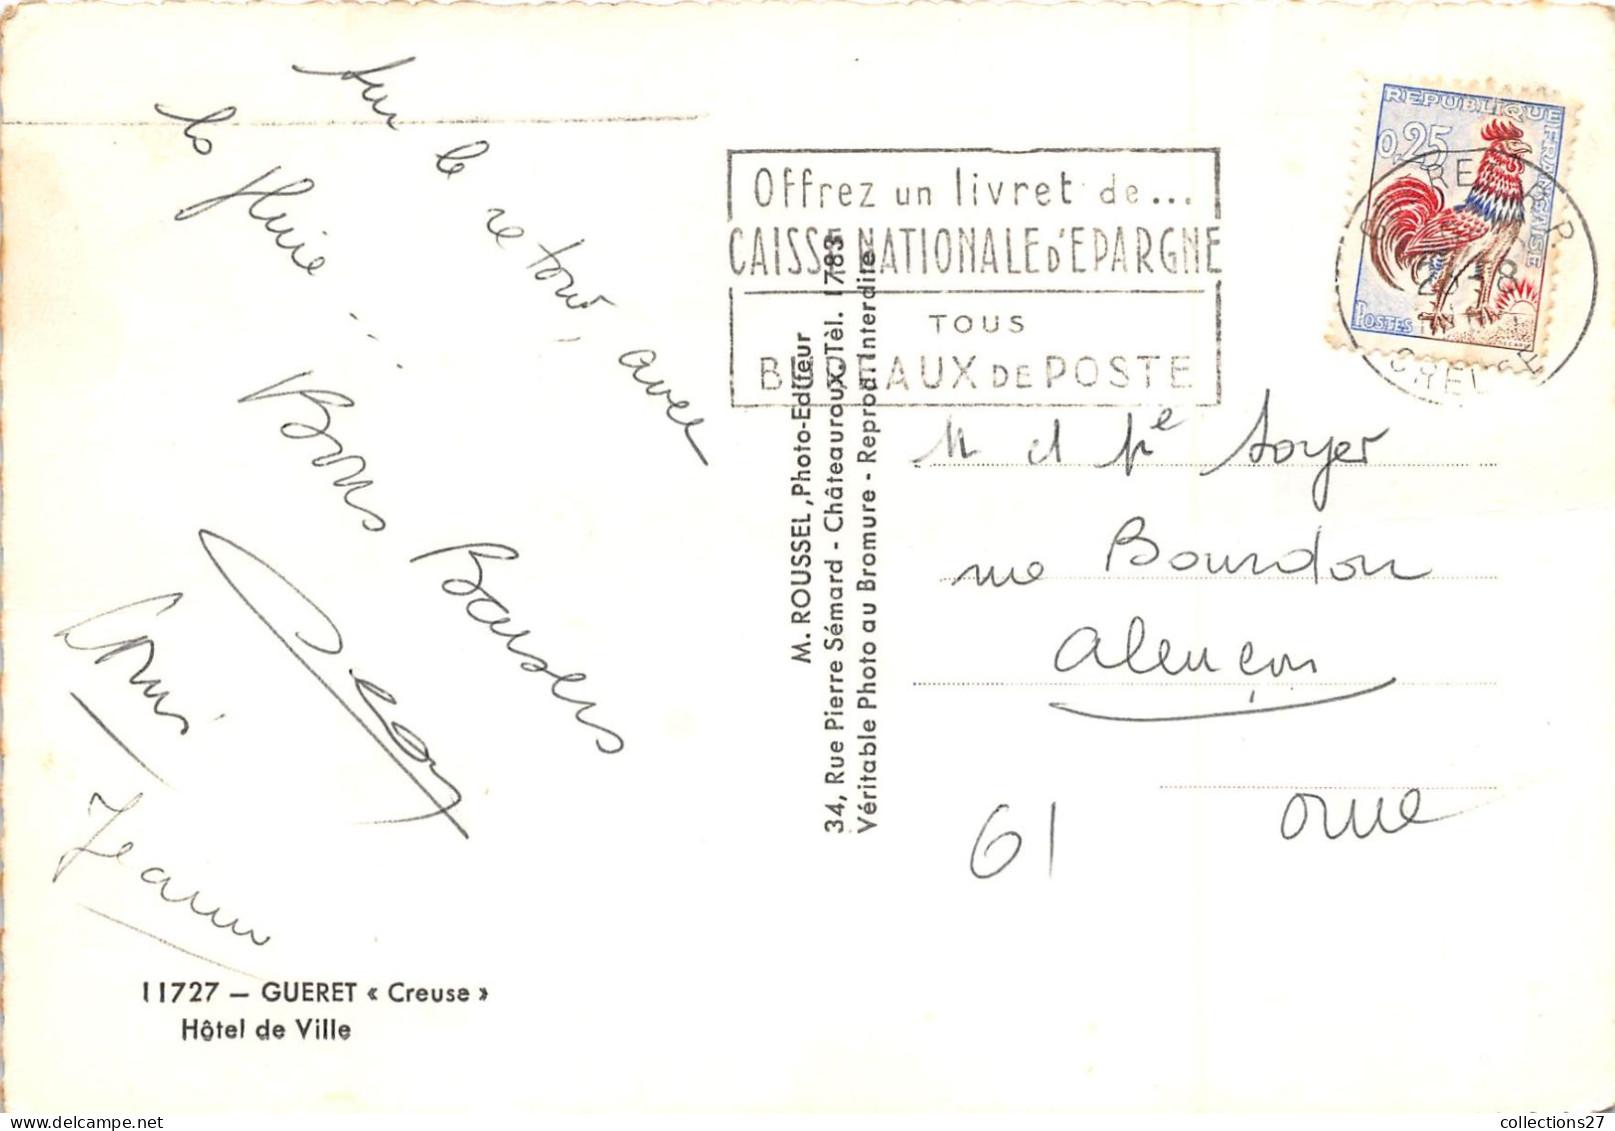 Sur le retour, avec
la pluie...
Bons Baisers
Jeanne
11727 — GUERET « Creuse »
Hôtel de Ville
M. ROUSSEL, Photo-Editeur
34, Rue Pierre Sémard - Châteauroux, Tél. 1783
Véritable Photo au Bromure - Reprod. Interdite
Offrez un livret de...
CAISSE NATIONALE D'EPARGNE
TOUS
BUREAUX DE POSTE
REPUBLIQUE FRANCAISE
0,25
POSTES
GUERET R.P.
CREUSE
M et Me Soyer
rue Bourdon
Alençon
61 Orne
collections27